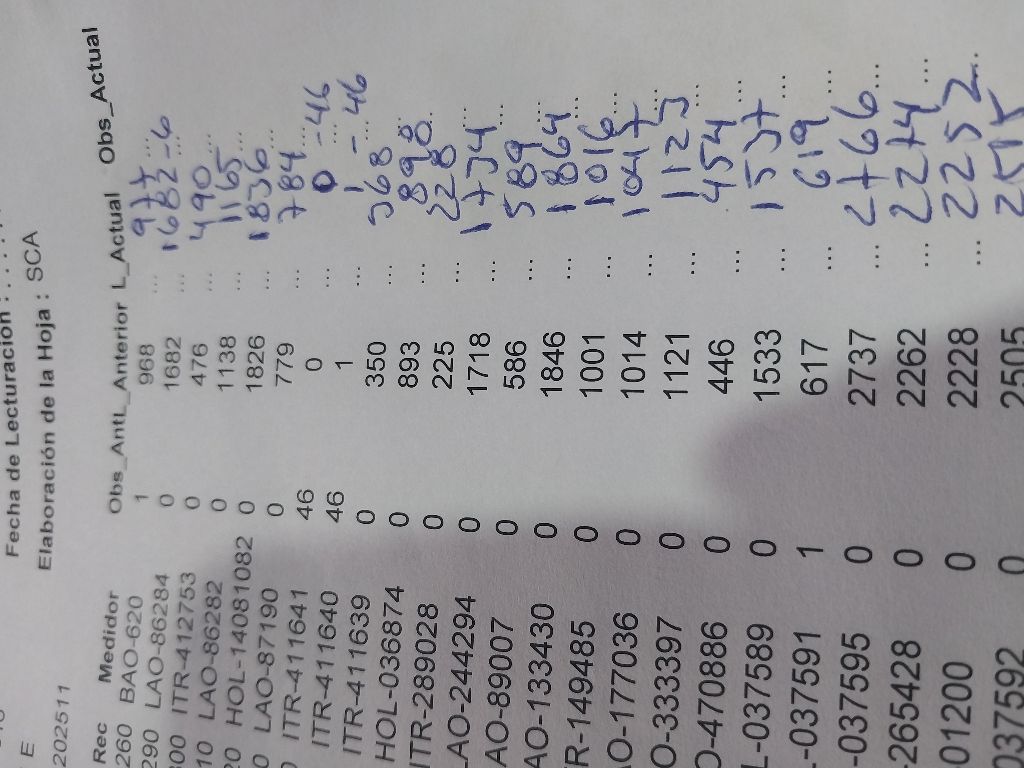 Fecha de Lecturación : . . . .
E Elaboración de la Hoja : SCA
202511
Rec Medidor Obs_Ant L_Anterior L_Actual Obs_Actual
260 BAO-620 1 968 ... 977 ...
290 LAO-86284 0 1682 ... 1682 -6
00 ITR-412753 0 476 ... 490 ...
10 LAO-86282 0 1138 ... 1165 ...
20 HOL-14081082 0 1826 ... 1836 ...
0 LAO-87190 0 779 ... 784 ...
0 ITR-411641 46 0 ... 0 -46
ITR-411640 46 1 ... 1 -46
ITR-411639 0 350 ... 368 ...
HOL-036874 0 893 ... 898 ...
ITR-289028 0 225 ... 228 ...
LAO-244294 0 1718 ... 1734 ...
AO-89007 0 586 ... 589 ...
AO-133430 0 1846 ... 1864 ...
R-149485 0 1001 ... 1016 ...
O-177036 0 1014 ... 1047 ...
O-333397 0 1121 ... 1123 ...
O-470886 0 446 ... 454 ...
L-037589 0 1533 ... 1537 ...
-037591 1 617 ... 619 ...
-037595 0 2737 ... 2766 ...
-265428 0 2262 ... 2274 ...
01200 0 2228 ... 2252 ...
037592 0 2505